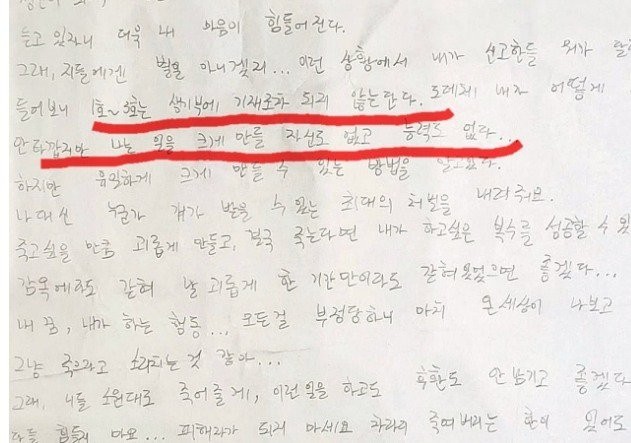 듣고 있자니 더욱 내 마음이 힘들어진다.
그래, 지들에겐 별일 아니겠지... 이런 상황에서 내가 신고한들 뭐가
들어보니 1호~3호는 생기부에 기재조차 되지 않는단다. 도데체 내가 어떻게
안타깝지만 나는 일을 크게 만들 자신도 없고 능력도 없다...
하지만 유일하게 크게 만들 수 있는 방법을 알고있다.
나 대신 누군가 걔가 받을 수 있는 최대의 처벌을 내려줘.
죽고싶을 만큼 괴롭게 만들고, 결국 죽는다면 내가 하고싶은 복수를 성공할 수 있
감옥에라도 갇혀 날 괴롭게 한 기간만이라도 갇혀있었으면 좋겠다...
내 꿈, 내가 하는 행동... 모든걸 부정당하니 마치 온세상이 나보고
그냥 죽으라고 소리치는 것 같아...
그래, 니들 소원대로 죽어줄게, 이런일을 하고도 후환도 안 남기고 좋겠다
다들 힘들지 마요... 피해자가 되지 마세요 차라리 죽여버리는 한이 있어도